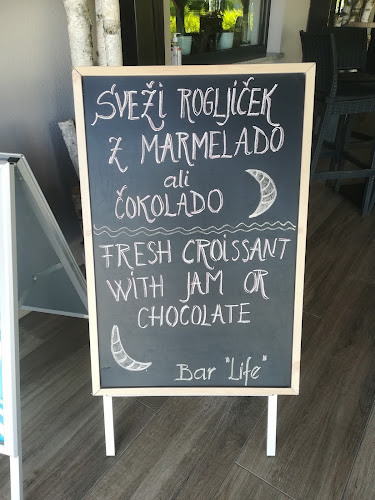 SVEŽI ROGLJIČEK
Z MARMELADO
ali
ČOKOLADO
FRESH CROISSANT
WITH JAM OR
CHOCOLATE
Bar "Life"